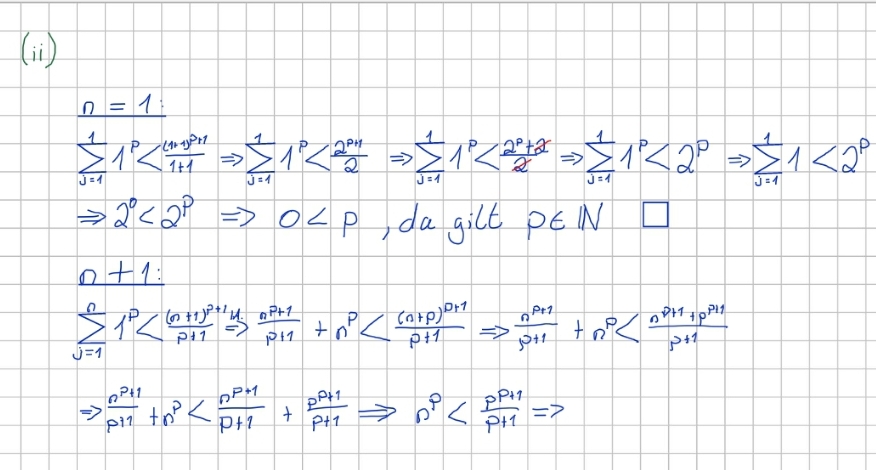 (ii)
n = 1:
\sum_{j=1}^{1} 1^p < \frac{(1+1)^{p+1}}{1+1} => \sum_{j=1}^{1} 1^p < \frac{2^{p+1}}{2} => \sum_{j=1}^{1} 1^p < \frac{2^p + 2}{2} => \sum_{j=1}^{1} 1^p < 2^p => \sum_{j=1}^{1} 1 < 2^p
=> 2^0 < 2^p => 0 < p , da gilt p ∈ ℕ □
n + 1:
\sum_{j=1}^{n} 1^p < \frac{(n+1)^{p+1}}{p+1} => \frac{n^{p+1}}{p+1} + n^p < \frac{(n+p)^{p+1}}{p+1} => \frac{n^{p+1}}{p+1} + n^p < \frac{n^{p+1} + p^{p+1}}{p+1}
=> \frac{n^{p+1}}{p+1} + n^p < \frac{n^{p+1}}{p+1} + \frac{p^{p+1}}{p+1} => n^p < \frac{p^{p+1}}{p+1} =>